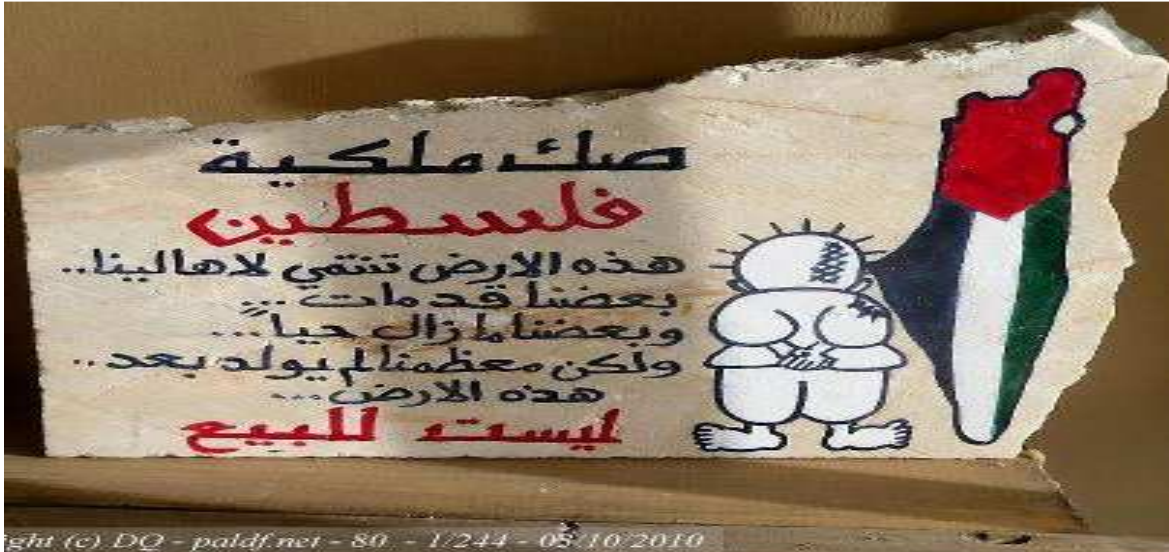 صك ملكية
فلسطين
هذه الارض تنتمي لاهالينا..
بعضنا قد مات...
وبعضنا ما زال حياً...
ولكن معظمنا لم يولد بعد..
هذه الارض...
ليست للبيع
ight (c) DQ - paldf.net - 80 - 1/244 - 03/10/2010